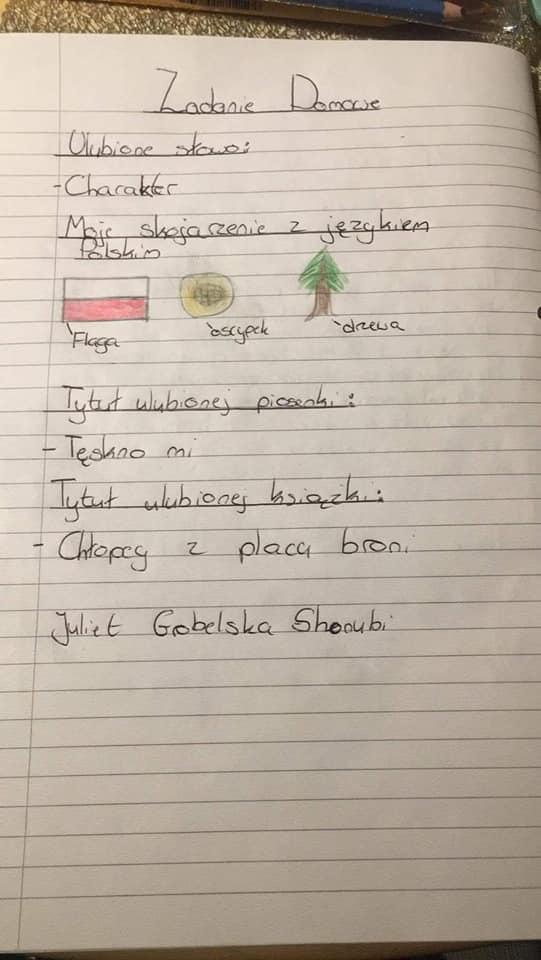 Zadanie Domowe
Ulubione słowo:
- Charakter
Moje skojarzenie z językiem
Polskim
Flaga oscypek drzewa
Tytuł ulubionej piosenki:
- Tęskno mi
Tytuł ulubionej książki:
- Chłopcy z placu broni
Juliet Gobelska Shoubi